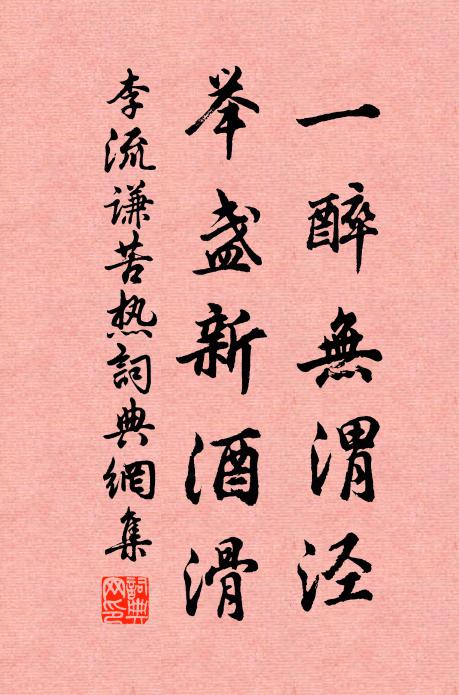 一醉無渭泾
举盏新酒滑
李流谦苦热詞典網集
詞典网印